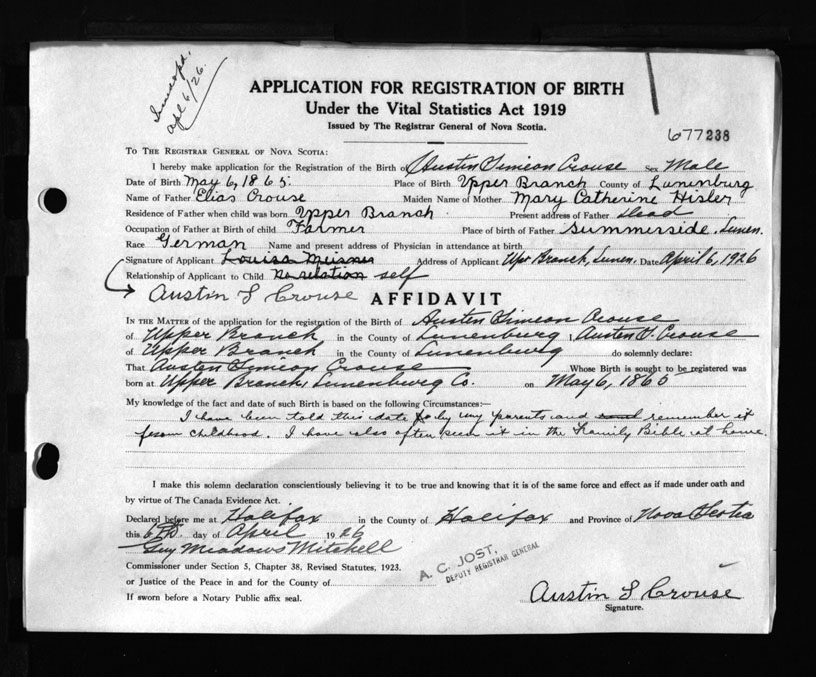 Apl 6/26.
APPLICATION FOR REGISTRATION OF BIRTH
Under the Vital Statistics Act 1919
Issued by The Registrar General of Nova Scotia.
677238
TO THE REGISTRAR GENERAL OF NOVA SCOTIA:
I hereby make application for the Registration of the Birth of Austen Simeon Crouse Sex Male
Date of Birth May 6, 1865. Place of Birth Upper Branch County of Lunenburg
Name of Father Elias Crouse Maiden Name of Mother Mary Catherine Hisler
Residence of Father when child was born Upper Branch Present address of Father dead
Occupation of Father at Birth of child Farmer Place of birth of Father Summerside, Lunen.
Race German Name and present address of Physician in attendance at birth
Signature of Applicant Louisa Meisner Address of Applicant Upr Branch, Lunen. Date April 6, 1926
Relationship of Applicant to Child No relation self
Austin S Crouse AFFIDAVIT
IN THE MATTER of the application for the registration of the Birth of Austen Simeon Crouse
of Upper Branch in the County of Lunenburg I, Austen S. Crouse
of Upper Branch in the County of Lunenburg do solemnly declare:
That Austen Simeon Crouse Whose Birth is sought to be registered was
born at Upper Branch, Lunenburg Co. on May 6, 1865
My knowledge of the fact and date of such Birth is based on the following Circumstances:—
I have been told this date by my parents and remember it
from childhood. I have also often seen it in the Family Bible at home.
I make this solemn declaration conscientiously believing it to be true and knowing that it is of the same force and effect as if made under oath and
by virtue of The Canada Evidence Act.
Declared before me at Halifax in the County of Halifax and Province of Nova Scotia
this 6th day of April 1926
Guy Meadows Mitchell
Commissioner under Section 5, Chapter 38, Revised Statutes, 1923.
A. C. JOST,
DEPUTY REGISTRAR GENERAL
or Justice of the Peace in and for the County of
If sworn before a Notary Public affix seal.
Austin S Crouse
Signature.